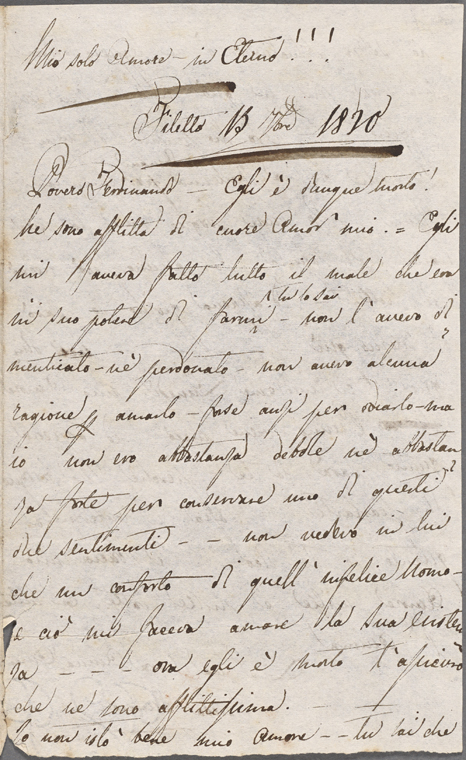 Mio solo Amore - in Eterno!!!
Filetto 15 7bre 1820
Povero Ferdinando - Egli è dunque morto!
Ne sono afflitta di cuore Amor' mio. = Egli
mi aveva fatto tutto il male che era
in suo potere di farmi - tu lo sai - non l'avevo di
menticato - nè perdonato - non avevo alcuna
ragione p amarlo - forse anzi per odiarlo - ma
io non ero abbastanza debole nè abbastan
za forte per conservare uno di questi
due sentimenti - - non vedevo in lui
che un conforto di quell' infelice Uomo -
e ciò mi faceva amare la sua esisten
za - - - ora egli è morto t'assicuro
che ne sono afflittissima.
Io non istò bene mio Amore - - tu sai che